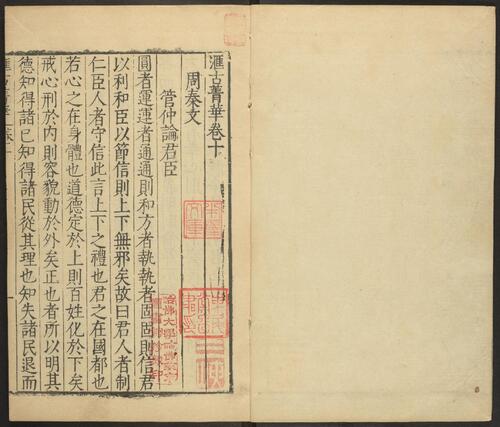 滙古菁華卷十
周秦文
管仲論君臣
圓者運運者通通則和方者執執者固固則信君
以利和臣以節信則上下無邪矣故曰君人者制
仁臣人者守信此言上下之禮也君之在國都也
若心之在身體也道德定於上則百姓化於下矣
戒心刑於内則容貌動於外矣正也者所以明其
德知得諸已知得諸民從其理也知失諸民退而
哈佛大學